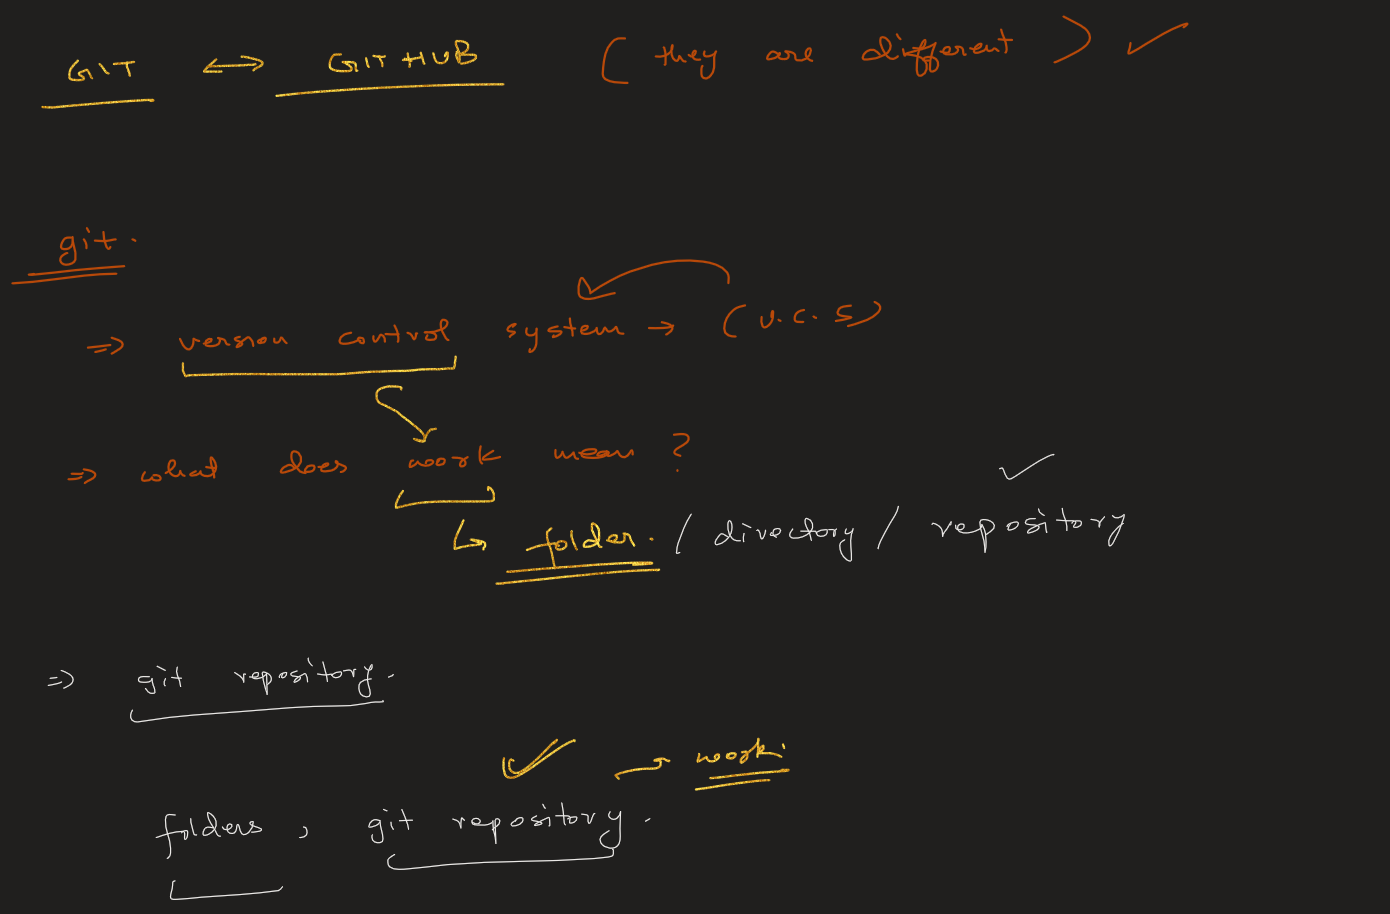 GIT ↔ GITHUB (they are different) ✓
git.
⇒ version control system → (V.C.S)
⇒ what does work mean ?
↳ folder. / directory / repository ✓
⇒ git repository.
✓ → work.
folders , git repository.